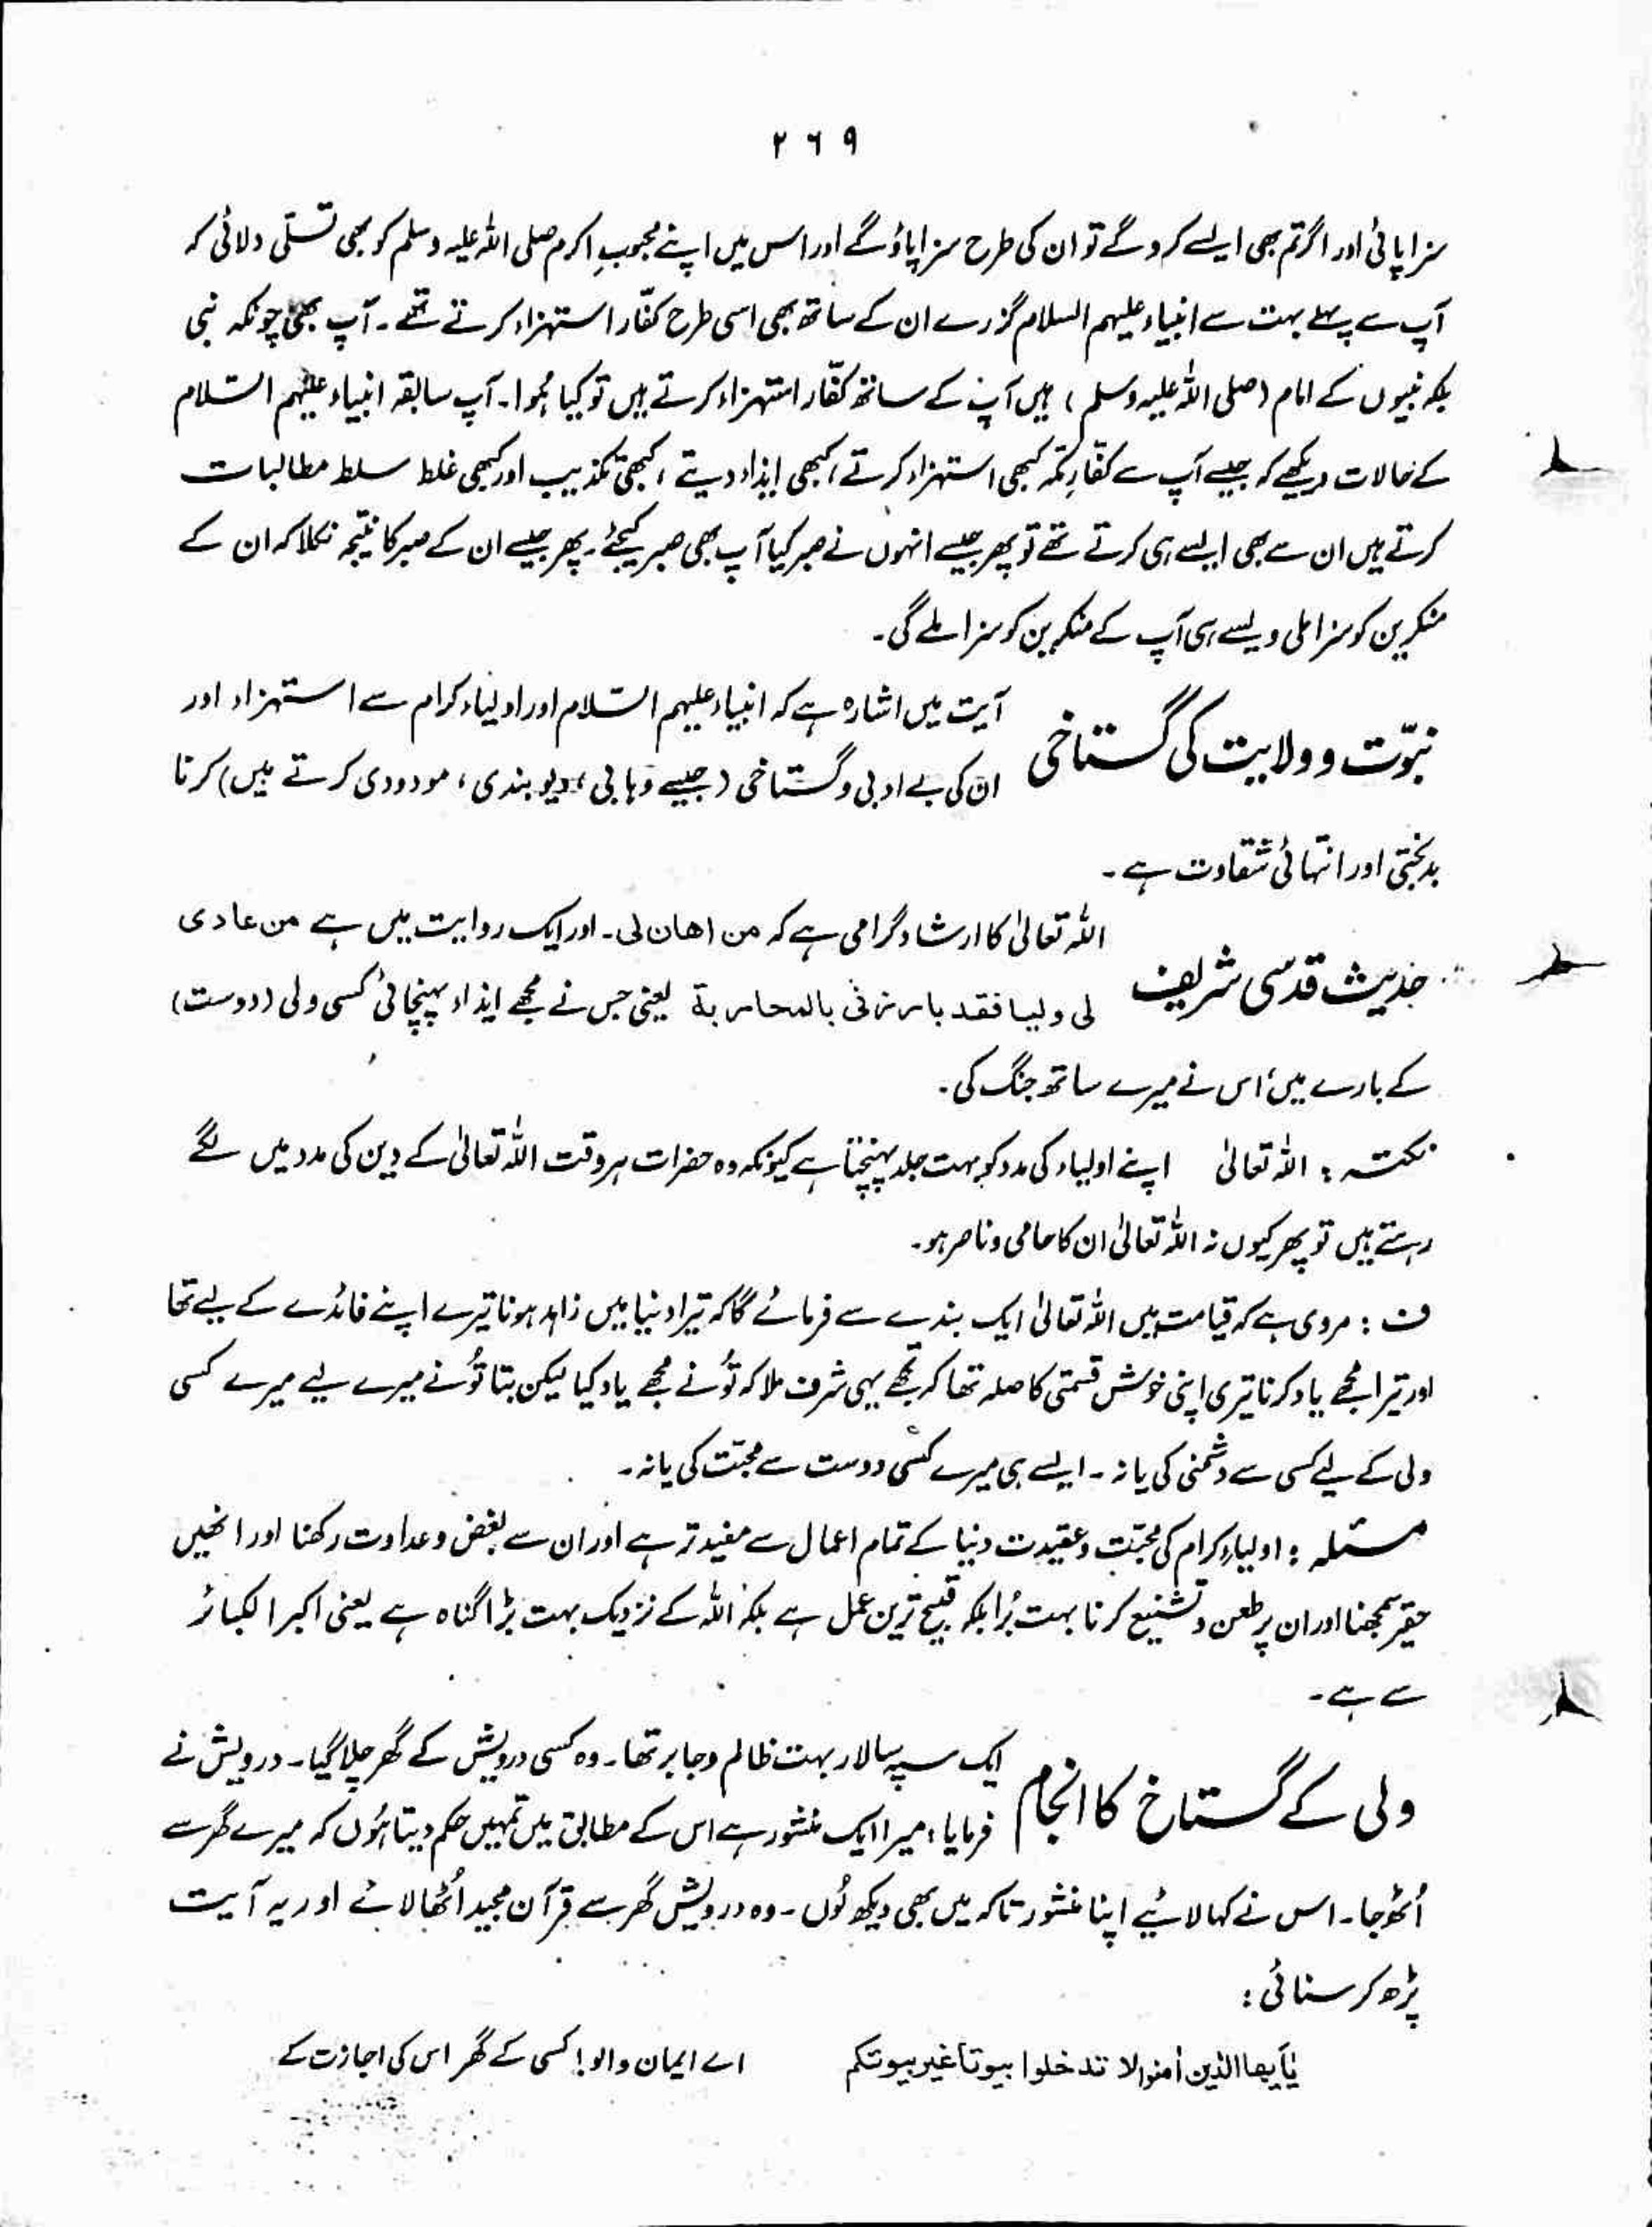 ۲۶۹
سزا پائی اور اگر تم بھی ایسے کرو گے تو ان کی طرح سزا پاؤ گے اور اس میں اپنے محبوبِ اکرم صلی اللہ علیہ وسلم کو بھی تسلّی دلائی کہ
آپ سے پہلے بہت سے انبیاء علیہم السلام گزرے ان کے ساتھ بھی اسی طرح کفّار استہزاء کرتے تھے۔ آپ بھی چونکہ نبی
بلکہ نبیوں کے امام (صلی اللہ علیہ وسلم) ہیں آپ کے ساتھ کفّار استہزاء کرتے ہیں تو کیا ہُوا۔ آپ سابقہ انبیاء علیہم السّلام
کے حالات دیکھے کہ جیسے آپ سے کفّارِ مکّہ کبھی استہزاء کرتے، کبھی ایذاء دیتے، کبھی تکذیب اور کبھی غلط سلط مطالبات
کرتے ہیں ان سے بھی ایسے ہی کرتے تھے تو پھر جیسے انہوں نے صبر کیا آپ بھی صبر کیجئے۔ پھر جیسے ان کے صبر کا نتیجہ نکلا کہ ان کے
منکرین کو سزا ملی ویسے ہی آپ کے منکرین کو سزا ملے گی۔
نبوّت و ولایت کی گستاخی
آیت میں اشارہ ہے کہ انبیاء علیہم السّلام اور اولیاء کرام سے استہزاء اور
ان کی بے ادبی و گستاخی (جیسے وہابی، دیوبندی، مودودی کرتے ہیں) کرنا
بدبختی اور انتہائی شقاوت ہے۔
حدیث قدسی شریف
اللہ تعالیٰ کا ارشاد گرامی ہے کہ من اھان لی۔ اور ایک روایت میں ہے من عادی
لی ولیا فقد بارزنی بالمحاربة یعنی جس نے مجھے ایذاء پہنچائی کسی ولی (دوست)
کے بارے میں، اس نے میرے ساتھ جنگ کی۔
نکتہ : اللہ تعالیٰ اپنے اولیاء کی مدد کو بہت جلد پہنچتا ہے کیونکہ وہ حضرات ہر وقت اللہ تعالیٰ کے دین کی مدد میں لگے
رہتے ہیں تو پھر کیوں نہ اللہ تعالیٰ ان کا حامی و ناصر ہو۔
ف : مروی ہے کہ قیامت میں اللہ تعالیٰ ایک بندے سے فرمائے گا کہ تیرا دنیا میں زاہد ہونا تیرے اپنے فائدے کے لیے تھا
اور تیرا مجھے یاد کرنا تیری اپنی خوش قسمتی کا صلہ تھا کہ تجھے یہی شرف ملا کہ تُو نے مجھے یاد کیا لیکن بتا تُو نے میرے لیے میرے کسی
ولی کے لیے کسی سے دشمنی کی یا نہ۔ ایسے ہی میرے کسی دوست سے محبّت کی یا نہ۔
مسئلہ : اولیاءِ کرام کی محبّت و عقیدت دنیا کے تمام اعمال سے مفید تر ہے اور ان سے بغض و عداوت رکھنا اور انھیں
حقیر سمجھنا اور ان پر طعن و تشنیع کرنا بہت بُرا بلکہ قبیح ترین عمل ہے بلکہ اللہ کے نزدیک بہت بڑا گناہ ہے یعنی اکبر الکبائر
سے ہے۔
ولی کے گستاخ کا انجام
ایک سپہ سالار بہت ظالم و جابر تھا۔ وہ کسی درویش کے گھر چلا گیا۔ درویش نے
فرمایا، میرا ایک منشور ہے اس کے مطابق میں تمہیں حکم دیتا ہُوں کہ میرے گھر سے
اُٹھ جا۔ اس نے کہا لائیے اپنا منشور تاکہ میں بھی دیکھ لُوں۔ وہ درویش گھر سے قرآن مجید اُٹھا لائے اور یہ آیت
پڑھ کر سنائی :
یٰاَیھا الذین اٰمنوا لا تدخلوا بیوتا غیر بیوتکم
اے ایمان والو! کسی کے گھر اس کی اجازت کے